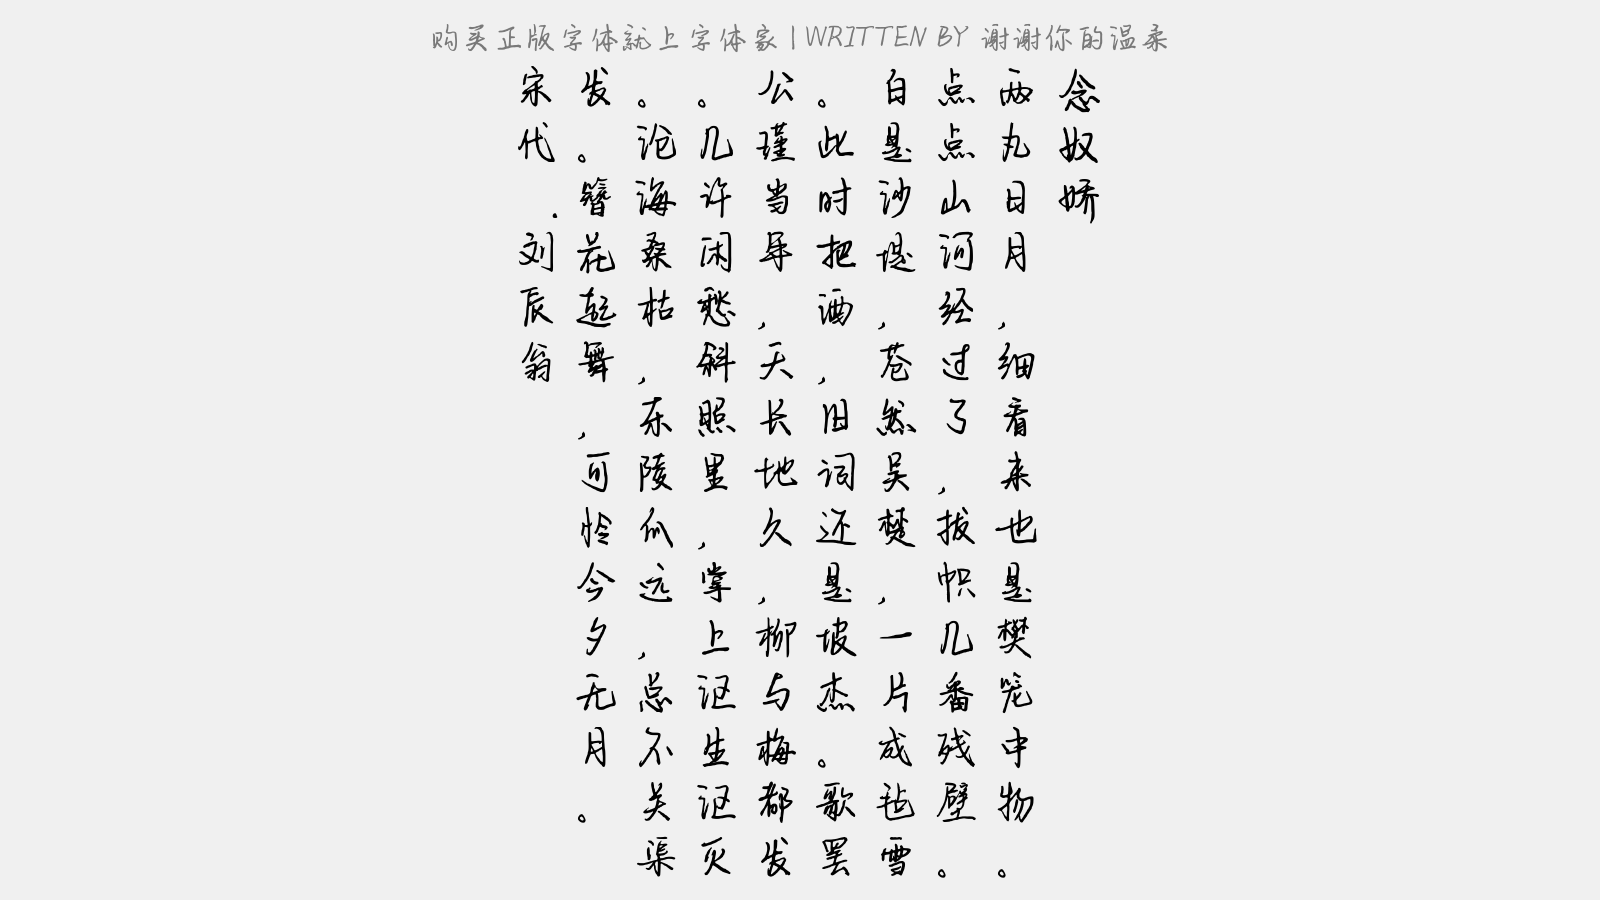 购买正版字体就上字体家 | WRITTEN BY 谢谢你的温柔
念奴娇
两丸日月，细看来也是樊笼中物。
点点山河经过了，拔帜几番残壁。
白是沙堤，苍然吴楚，一片成毡雪
。此时把酒，旧词还是坡杰。歌罢
公瑾当年，天长地久，柳与梅都发
。几许闲愁斜照里，掌上沤生沤灭
。沧海桑枯，东陵瓜远，总不关渠
发。簪花起舞，可怜今夕无月。
宋代·刘辰翁